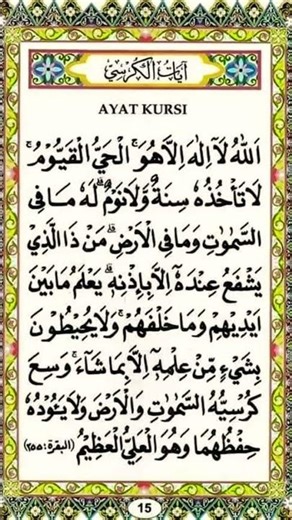 آيات الكرسي
AYAT KURSI
اَللّٰهُ لَآ اِلٰهَ اِلَّا هُوَۚ اَلْحَيُّ الْقَيُّوْمُ ەۚ
لَا تَأْخُذُهٗ سِنَةٌ وَّلَا نَوْمٌۗ لَهٗ مَا فِى
السَّمٰوٰتِ وَمَا فِى الْاَرْضِۗ مَنْ ذَا الَّذِيْ
يَشْفَعُ عِنْدَهٗٓ اِلَّا بِاِذْنِهٖۗ يَعْلَمُ مَا بَيْنَ
اَيْدِيْهِمْ وَمَا خَلْفَهُمْۚ وَلَا يُحِيْطُوْنَ
بِشَيْءٍ مِّنْ عِلْمِهٖٓ اِلَّا بِمَا شَآءَۚ وَسِعَ
كُرْسِيُّهُ السَّمٰوٰتِ وَالْاَرْضَۚ وَلَا يَـُٔوْدُهٗ
حِفْظُهُمَاۚ وَهُوَ الْعَلِيُّ الْعَظِيْمُ (البقرة: ٢٥٥)
15